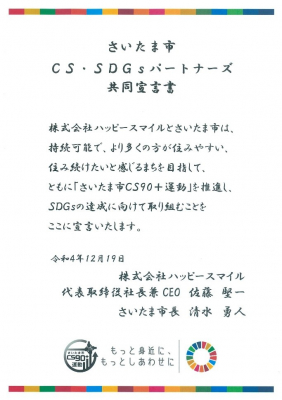 さいたま市
CS・SDGsパートナーズ
共同宣言書
株式会社ハッピースマイルとさいたま市は、
持続可能で、より多くの方が住みやすい、
住み続けたいと感じるまちを目指して、
ともに「さいたま市CS90+運動」を推進し、
SDGsの達成に向けて取り組むことを
ここに宣言いたします。
令和4年12月19日
株式会社ハッピースマイル
代表取締役社長兼CEO 佐藤 堅一
さいたま市長 清水 勇人
さいたま市民
CS90+
運動
もっと身近に、
もっとしあわせに